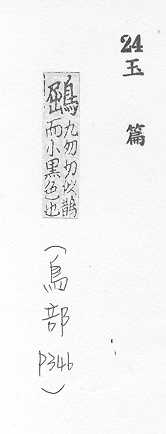 24 玉篇
鶌 九勿切似鵲
而小黑色也
(鳥部 P346)